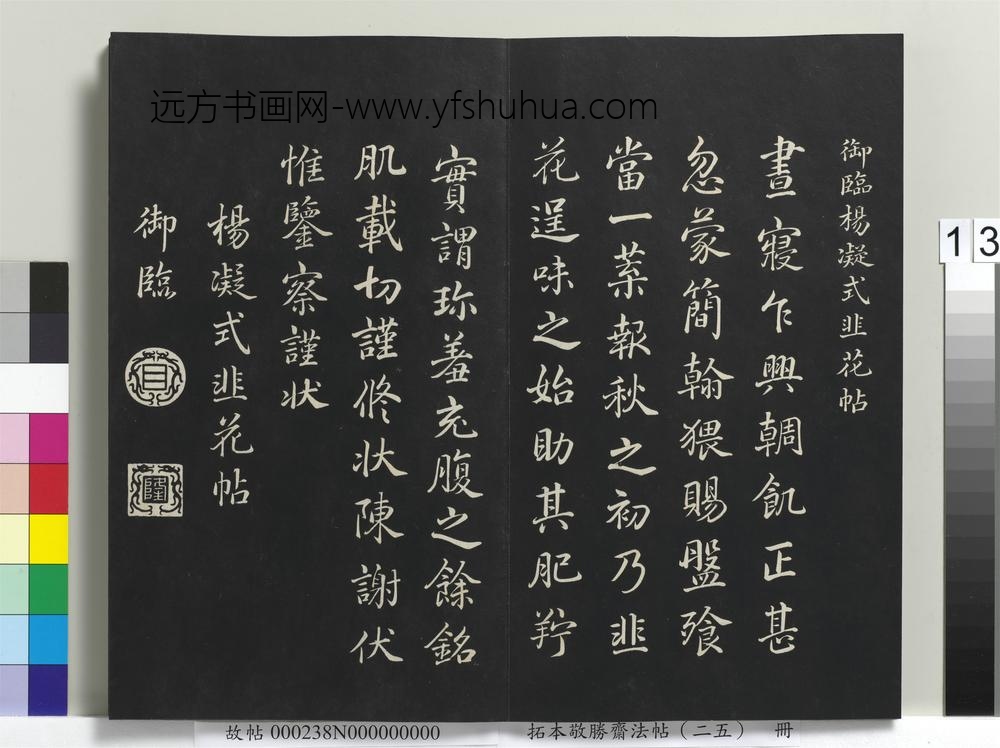 远方书画网-www.yfshuhua.com
御臨楊凝式韭花帖
晝寢乍興輖飢正甚
忽蒙簡翰猥賜盤飱
當一葉報秋之初乃韭
花逞味之始助其肥羜
實謂珎羞充腹之餘銘
肌載切謹修状陳謝伏
惟鑒察謹状
楊凝式韭花帖
御臨
13
故帖 000238N000000000
拓本敬勝齋法帖(二五) 冊